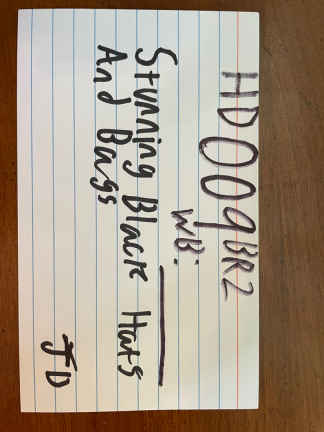 HD009BR2
WB:
Stunning Black Hats
And Bags
JD